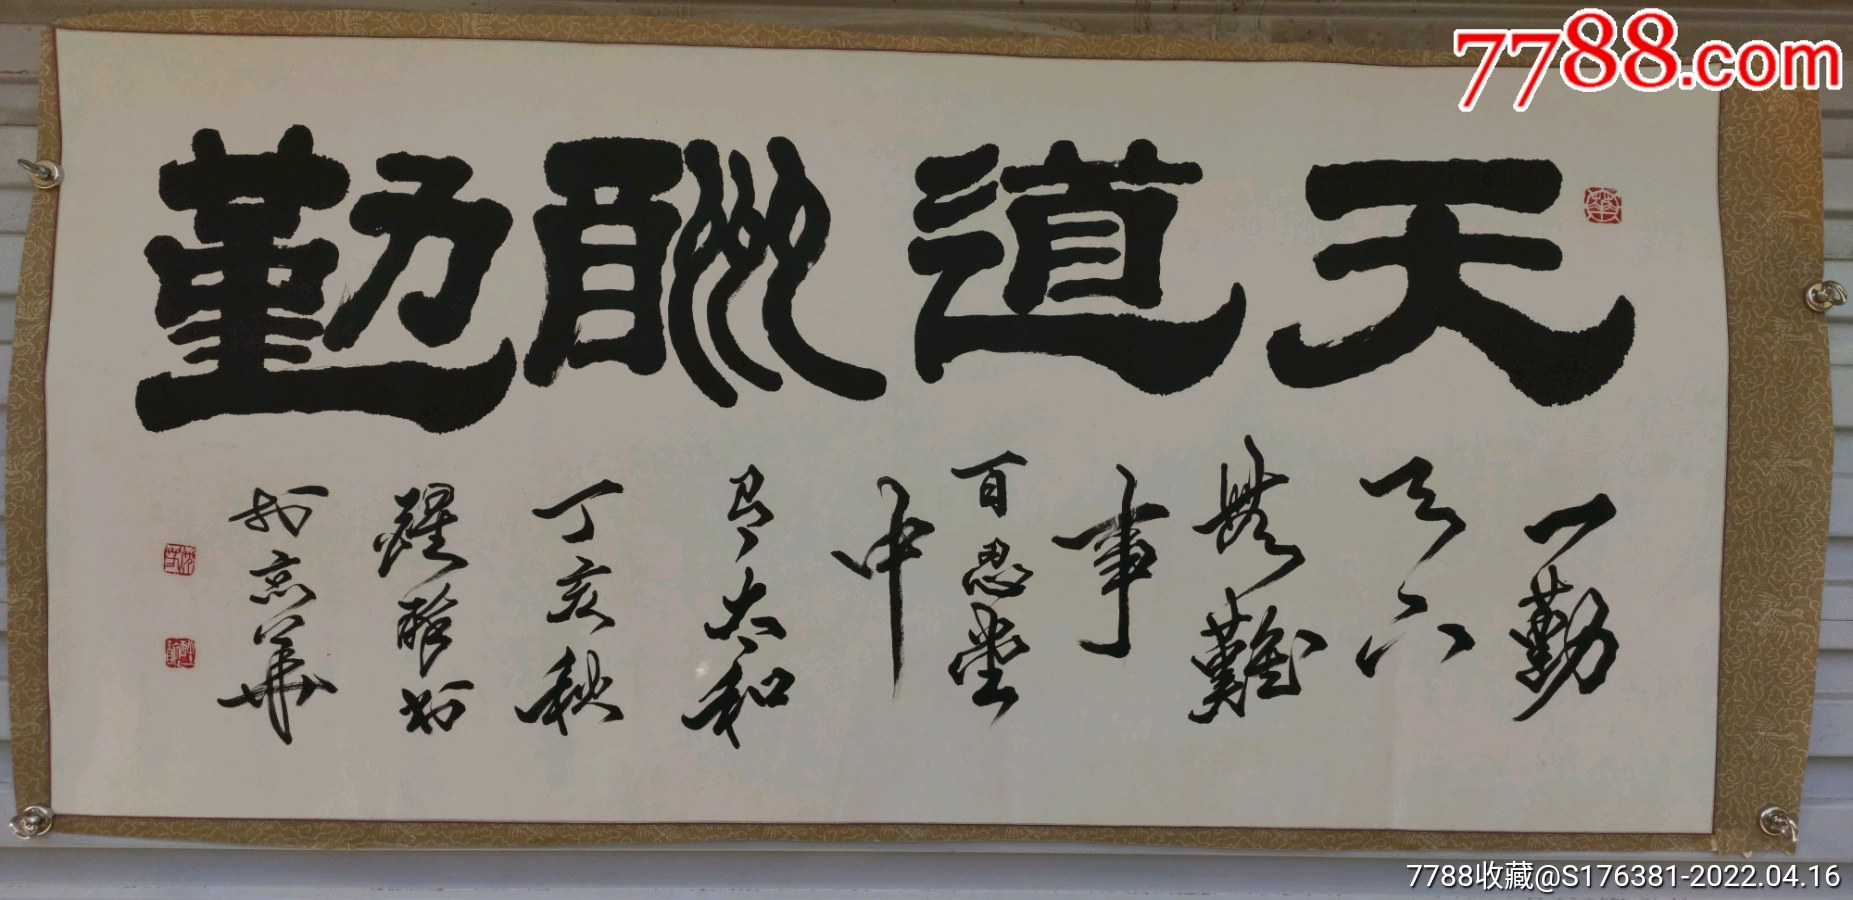 7788.com
天道酬勤
一勤
天下
無難
事
百忍堂
中
有太和
丁亥秋
书
於京華
7788收藏@S176381-2022.04.16